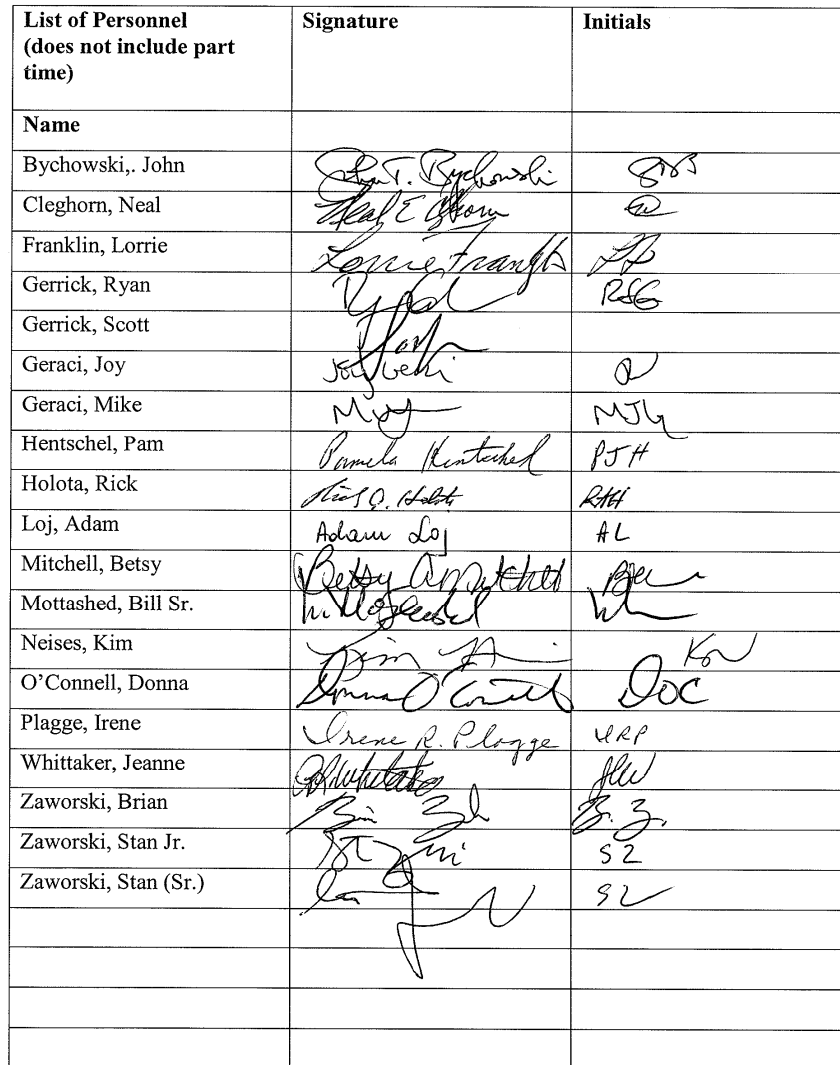 List of Personnel Signature Initials
(does not include part
time)
Name
Bychowski,. John John T. Bychowski
Cleghorn, Neal Neal E
Franklin, Lorrie Lorrie
Gerrick, Ryan RSG
Gerrick, Scott
Geraci, Joy Joy
Geraci, Mike MJG
Hentschel, Pam Pamela Hentschel PJH
Holota, Rick Rick A. Holota RAH
Loj, Adam Adam Loj AL
Mitchell, Betsy Betsy A Mitchell
Mottashed, Bill Sr.
Neises, Kim Kim
O'Connell, Donna Donna O'Connell DOC
Plagge, Irene Irene R. Plagge IRP
Whittaker, Jeanne JRW
Zaworski, Brian B. Z.
Zaworski, Stan Jr. SZ
Zaworski, Stan (Sr.) SZ